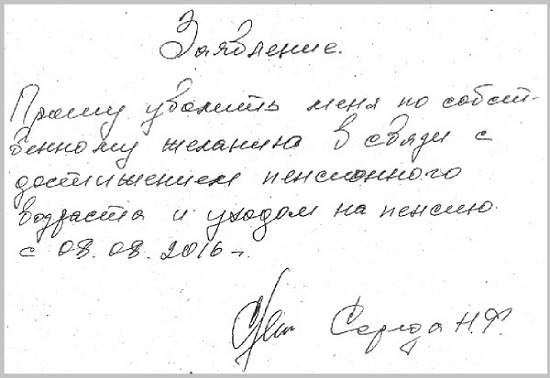 Заявление.
Прошу уволить меня по собст-
венному желанию в связи с
достижением пенсионного
возраста и уходом на пенсию
с 08.08.2016 г.
Середа Н.Ф.